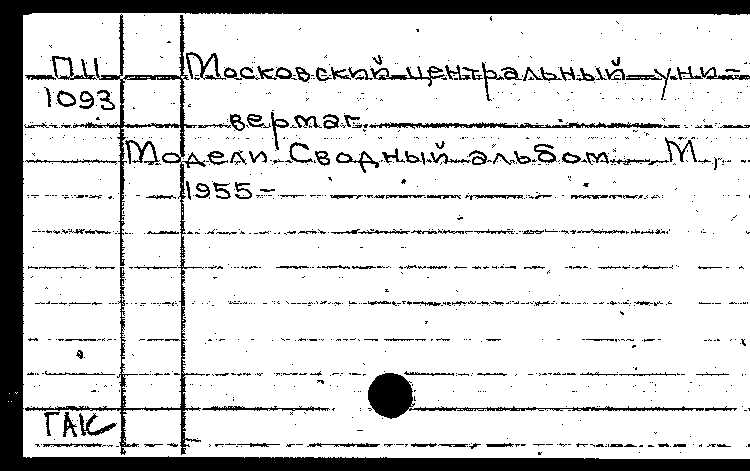 ПЦ Московский центральный уни-
1093
вермаг.
Модели. Сводный альбом. М,
1955-
ГАК